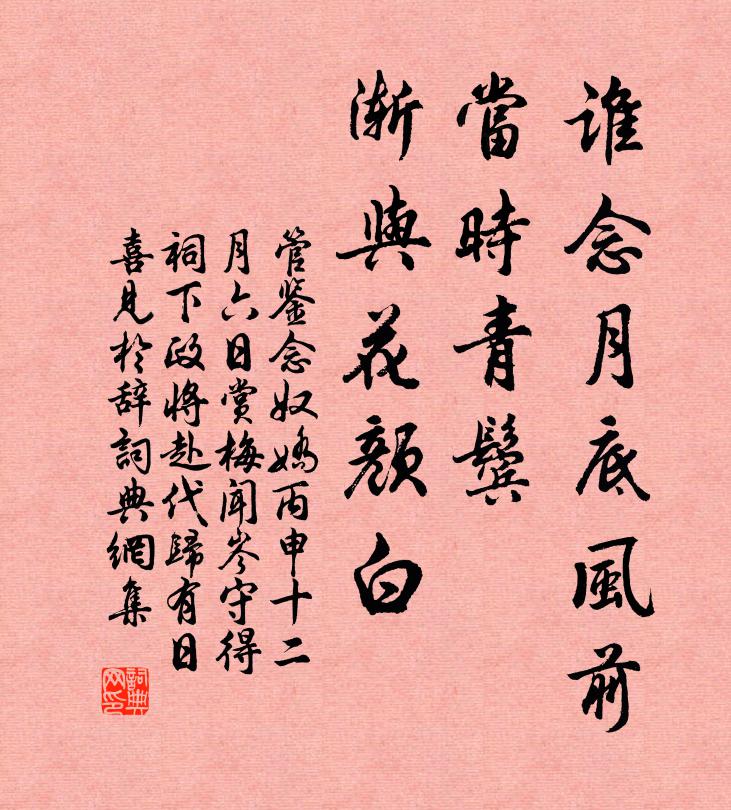 谁念月底風前
當時青鬓
渐與花顏白
管鉴念奴嬌丙申十二
月六日賞梅闻岑守得
祠下政將赴代歸有日
喜見於辞詞典網集
詞典网印